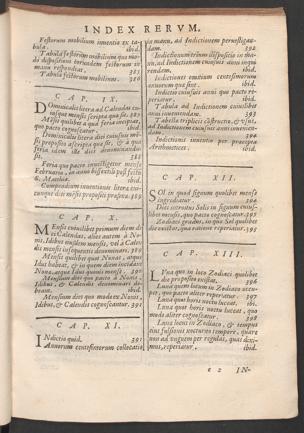 INDEX RERVM.
Festorum mobilium inventio ex ta-
bula. ibid.
Tabula festorum mobilium quo mo-
do dispositioni
manu respondeat. 385
Tabula festorum mobilium. 386
CAP. IX.
Dominicalis litera ad Calendas cu-
iusque mensis scripta quæ sit.
Mensis proposito à qua feria incipiat,
quo pacto cognoscatur. ibid.
Dominicalis litera diei cuiusvis men-
sis propositi ascripta quæ sit, & à qua
feria idem ille dies denominandus
sit. 388
Feria quo pacto investigetur mense
Februario, in anno bissextili post festum
S. Matthiæ. ibid.
Compendium inveniendi literæ cu-
iuscunque diei mensis propositi
CAP. X.
Mensis cuiuslibet primum diem di-
ci Calendas, alios autem à No-
nis, Idibus eiusdem mensis, vel à Calen-
dis mensis insequentis denominari. ibid.
Mensis quilibet quot Nonas, atque
Idus habeat, & in quem diem incidant
Nonæ, atque Idus quovis mense.
Mensium dies quo pacto à Nonis,
Idibus, & Calendis denominentur.
ibid.
Mensium dies quo modo ex Nonis,
Idibus, & Calendis cognoscantur. 392
CAP. XI.
Indictio quid. 391
Annorum centesimorum collocatio
in manu, ad Indictionem
dam. 392
Indictionum trium dispositio in ma-
nu, ad Indictionem cuiusvis anni inqui-
rendam. ibid.
Indictiones omnium centesimorum
annorum quæ sint. ibid.
Indictio cuiusvis anni quo pacto re-
periatur. ibid.
Tabula ad Indictionem cuiuslibet
anni inveniendam. 393
Tabulæ triplicis & usus,
ad Indictionem cuiusvis anni invenien-
dam. 394
Indictionis inventio per præcepta
Arithmetices. ibid.
CAP. XII.
Sol in quod signum quolibet mense
ingrediatur. 394
Dies introitus Solis in signum cuius-
libet mensis, quo pacto cognoscatur. 395
Zodiaci gradus, in quo Sol quolibet
die existat, qua ratione reperiatur. 395
CAP. XIII.
Luna quo in loco Zodiaci quolibet
die proposito existat. 396
Luna quem locum in Zodiaco occu-
pet, quo pacto aliter reperiatur. 397
Luna quot horis noctu luceat. ib.
Luna quot horis noctu luceat, quo
modo aliter cognoscatur. 398
Lunæ locus in Zodiaco, & tempus
eius fulsionis nocturno tempore, quare
non ad unguem per regulas, quas dedi-
mus, reperiatur. ibid.
e 2 IN-